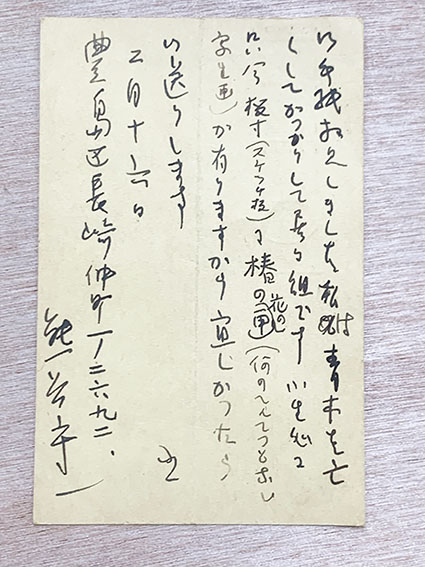 御手紙拝見しました 私は青木を亡
くしてがつかりして居る組です 小生宅に
只今 板寸(スケッチ板)に椿の花の画(何のへんてつもなし
写生画)が有りますから 宜しかつたら
御送りします
二月十六日
豊島区長崎仲町一ノ二六九二、
熊谷守一